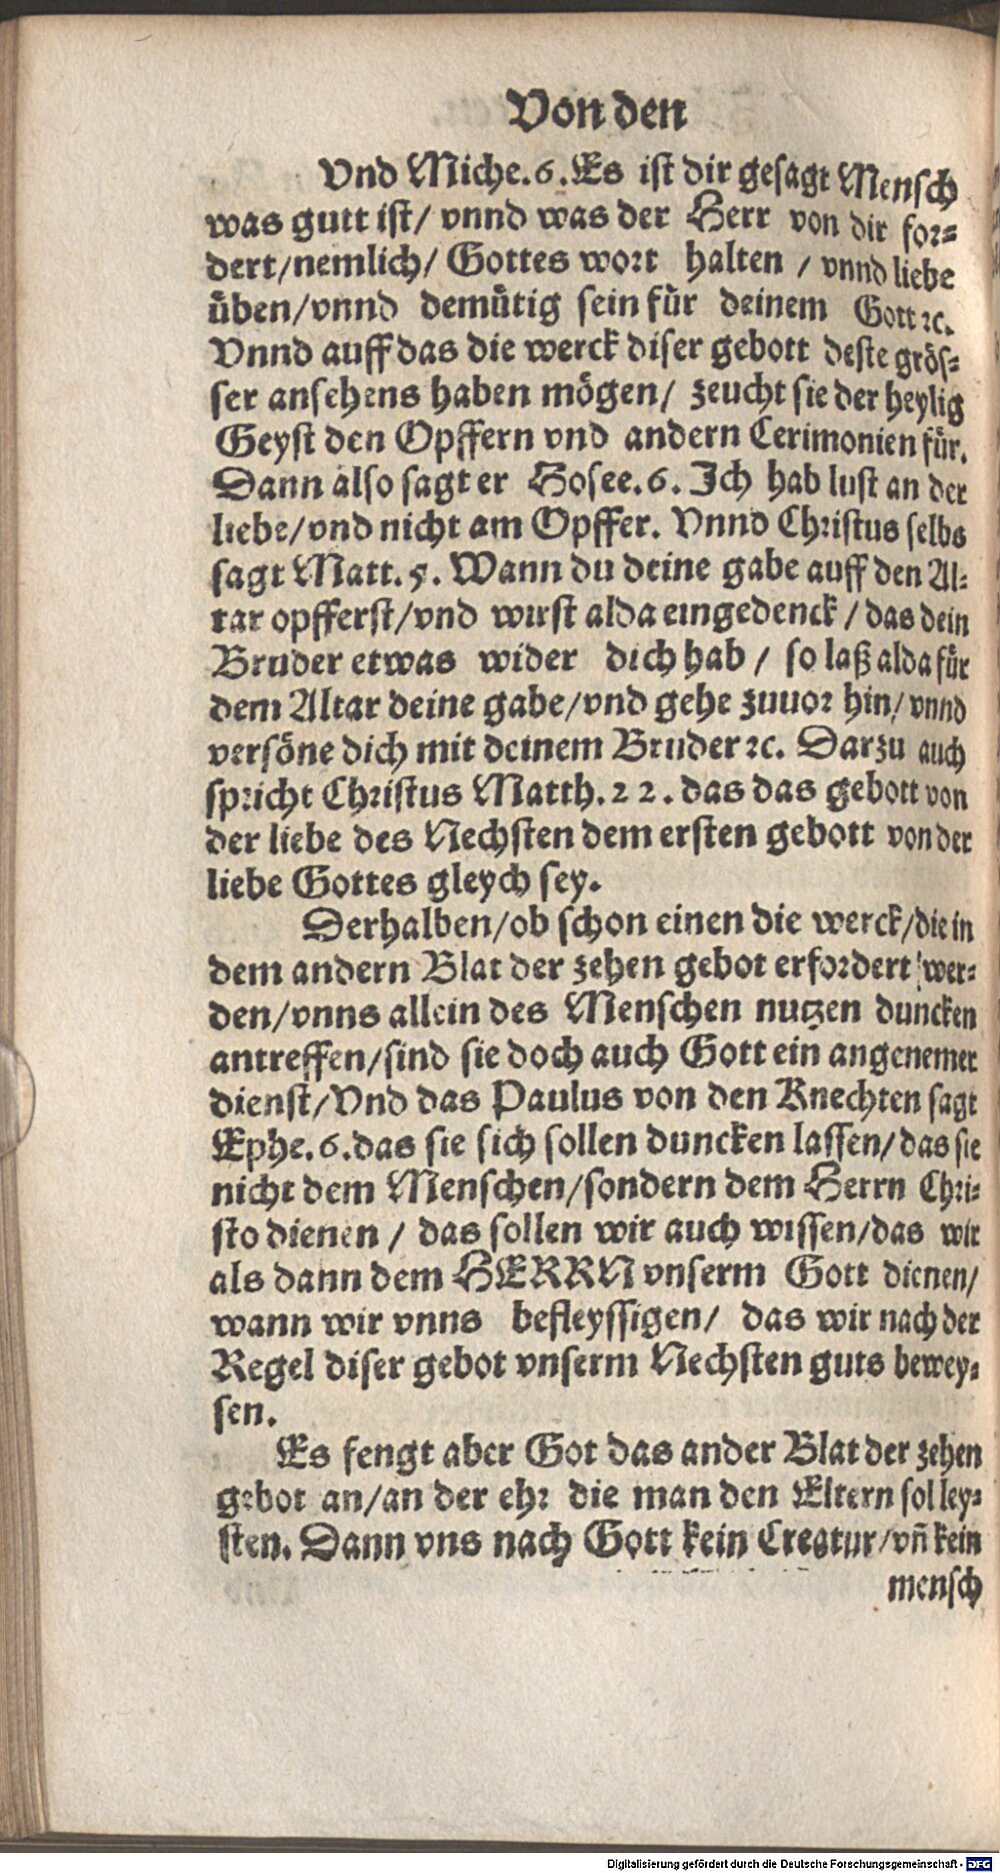 Von den
Vnd Miche.6.Es ist dir gesagt Mensch
was gutt ist/ vnnd was der Herr von dir for-
dert/nemlich/ Gottes wort halten / vnnd liebe
uͤben/vnnd demuͤtig sein fuͤr deinem Gott ꝛc.
Vnnd auff das die werck diser gebott deste groͤs-
ser ansehens haben moͤgen/ zeucht sie der heylig
Geyst den Opffern vnd andern Cerimonien fuͤr.
Dann also sagt er Hosee.6. Ich hab lust an der
liebe/vnd nicht am Opffer. Vnnd Christus selbs
sagt Matt.5. Wann du deine gabe auff den Al-
tar opfferst/vnd wirst alda eingedenck / das dein
Bruder etwas wider dich hab / so laß alda fuͤr
dem Altar deine gabe/vnd gehe zuuor hin/vnnd
versoͤne dich mit deinem Bruder ꝛc. Darzu auch
spricht Christus Matth.22.das das gebott von
der liebe des Nechsten dem ersten gebott von der
liebe Gottes gleych sey.
Derhalben/ob schon einen die werck/die in
dem andern Blat der zehen gebot erfordert wer-
den/vnns allein des Menschen nutzen duncken
antreffen/sind sie doch auch Gott ein angenemer
dienst/Vnd das Paulus von den Knechten sagt
Ephe.6.das sie sich sollen duncken lassen/das sie
nicht dem Menschen/sondern dem Herrn Chri-
sto dienen / das sollen wir auch wissen/das wir
als dann dem HERRN vnserm Gott dienen/
wann wir vnns befleyssigen/ das wir nach der
Regel diser gebot vnserm Nechsten guts bewey-
sen.
Es fengt aber Got das ander Blat der zehen
gebot an/an der ehr die man den Eltern sol ley-
sten. Dann vns nach Gott kein Creatur/vñ kein
mensch
Digitalisierung gefördert durch die Deutsche Forschungsgemeinschaft - DFG